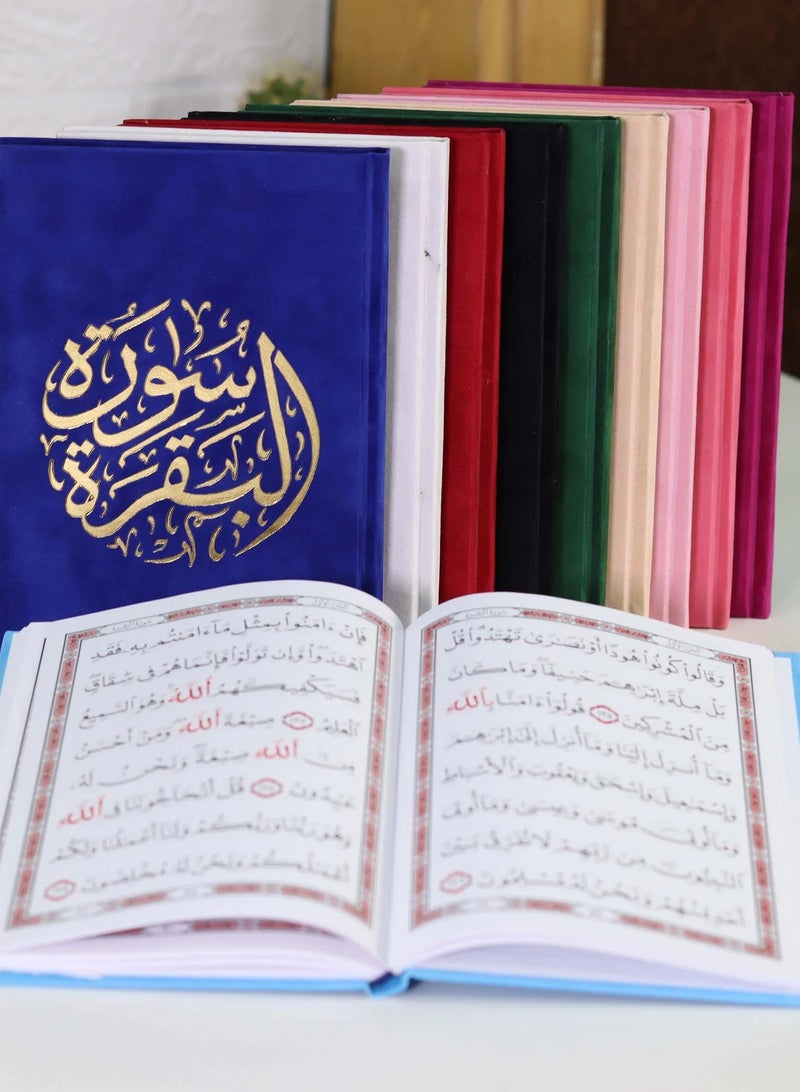 سُورَة
البَقَرَة
وَقَالُوا۟ كُونُوا۟ هُودًا أَوْ نَصَـٰرَىٰ تَهْتَدُوا۟ۗ قُلْ
بَلْ مِلَّةَ إِبْرَٰهِـۧمَ حَنِيفًاۖ وَمَا كَانَ
مِنَ ٱلْمُشْرِكِينَ ١٣٥ قُولُوٓا۟ ءَامَنَّا بِٱللَّهِ
وَمَآ أُنزِلَ إِلَيْنَا وَمَآ أُنزِلَ إِلَىٰٓ إِبْرَٰهِـۧمَ
وَإِسْمَـٰعِيلَ وَإِسْحَـٰقَ وَيَعْقُوبَ وَٱلْأَسْبَاطِ
وَمَآ أُوتِىَ مُوسَىٰ وَعِيسَىٰ وَمَآ أُوتِىَ
ٱلنَّبِيُّونَ مِن رَّبِّهِمْ لَا نُفَرِّقُ بَيْنَ
أَحَدٍ مِّنْهُمْ وَنَحْنُ لَهُۥ مُسْلِمُونَ ١٣٦
فَإِنْ ءَامَنُوا۟ بِمِثْلِ مَآ ءَامَنتُم بِهِۦ فَقَدِ
ٱهْتَدَوا۟ۖ وَّإِن تَوَلَّوْا۟ فَإِنَّمَا هُمْ فِى شِقَاقٍۖ
فَسَيَكْفِيكَهُمُ ٱللَّهُۚ وَهُوَ ٱلسَّمِيعُ
ٱلْعَلِيمُ ١٣٧ صِبْغَةَ ٱللَّهِۖ وَمَنْ أَحْسَنُ
مِنَ ٱللَّهِ صِبْغَةًۖ وَنَحْنُ لَهُۥ
عَـٰبِدُونَ ١٣٨ قُلْ أَتُحَآجُّونَنَا فِى ٱللَّهِ
وَهُوَ رَبُّنَا وَرَبُّكُمْ وَلَنَآ أَعْمَـٰلُنَا وَلَكُمْ
أَعْمَـٰلُكُمْ وَنَحْنُ لَهُۥ مُخْلِصُونَ ١٣٩